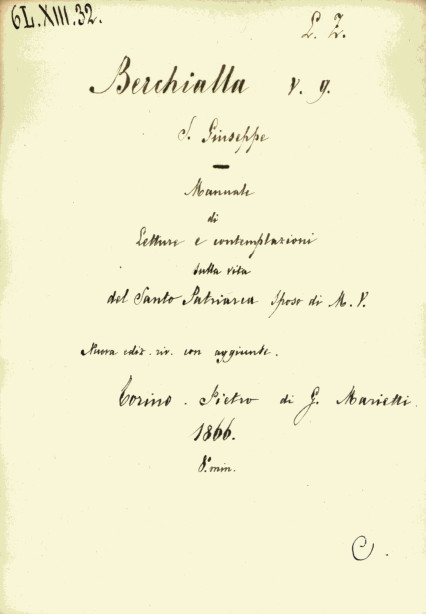 6L.XIII.32.
L. Z.
Berchialla V. G.
S. Giuseppe
Manuale
di
Letture e contemplazioni
sulla vita
del Santo Patriarca Sposo di M. V.
Nuova ediz. riv. con aggiunte.
Torino. Pietro di G. Marietti.
1866.
8.° min.
C.